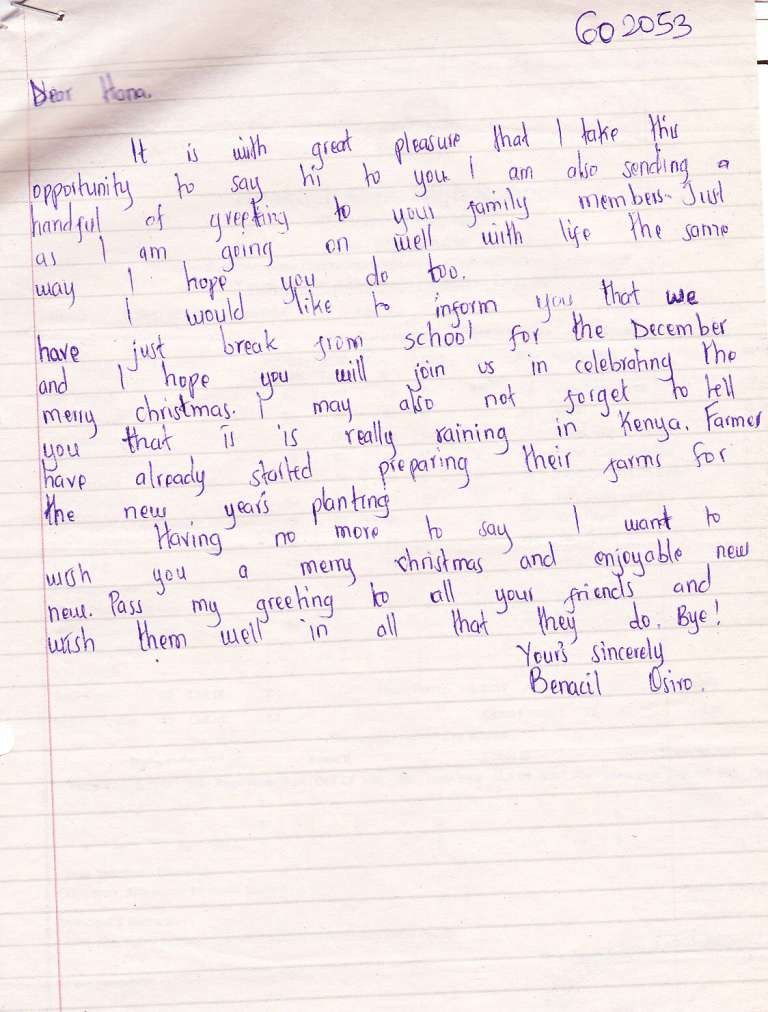 602053
Dear Hana.
It is with great pleasure that I take this
opportunity to say hi to you. I am also sending a
handful of greeting to your family members. Just
as I am going on well with life the same
way I hope you do too.
I would like to inform you that we
have just break from school for the December
and I hope you will join us in celebrating the
merry christmas. I may also not forget to tell
you that it is really raining in Kenya. Farmer
have already started preparing their farms for
the new year's planting
Having no more to say I want to
wish you a merry christmas and enjoyable new
new. Pass my greeting to all your friends and
wish them well in all that they do. Bye!
Your's sincerely
Benacil Osiro.